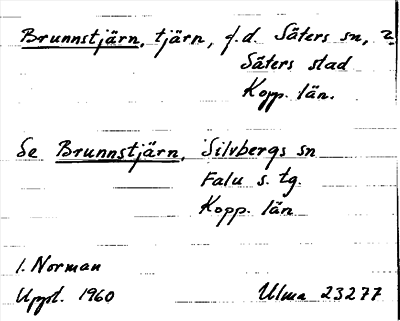 Brunnstjärn, tjärn, f.d. Säters sn,
Säters stad
Kopp. län.
Se Brunnstjärn, Silvbergs sn
Falu s. tg.
Kopp. län
I. Norman
Uppt. 1960 Ulma 23277